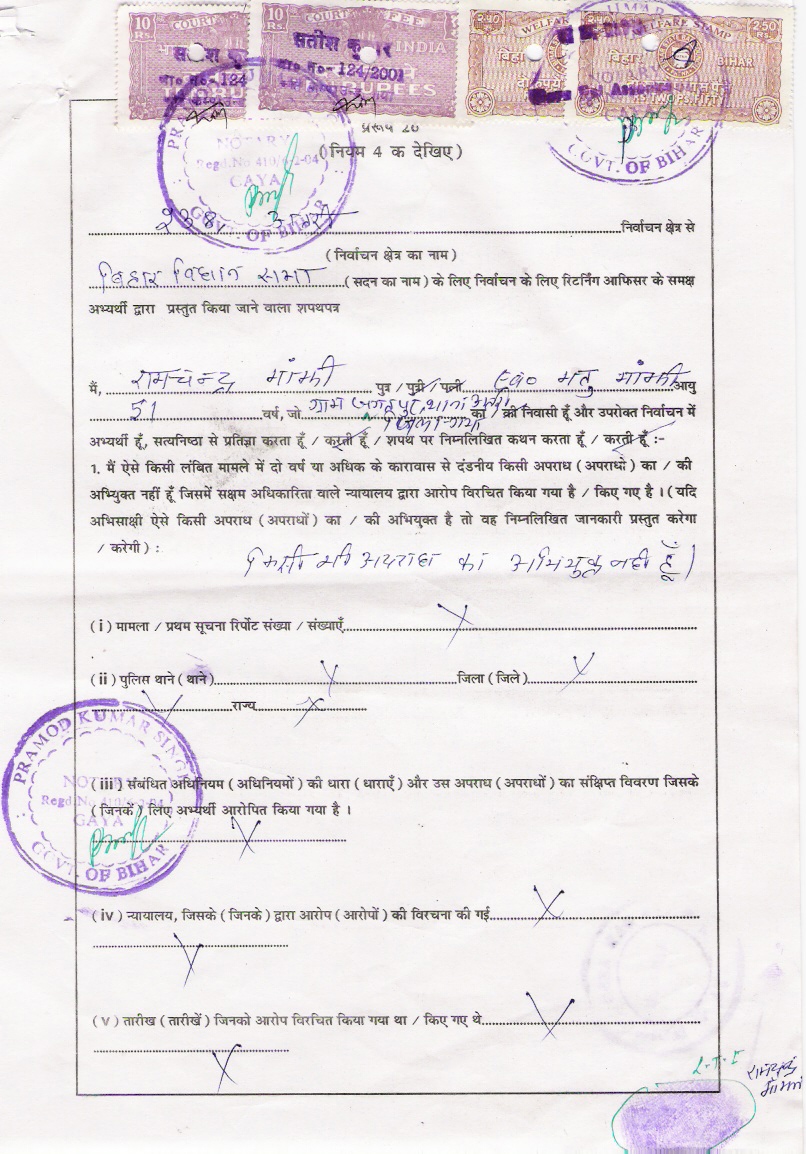 10 Rs. COURT FEE
10 Rs. COURT FEE INDIA
सतीश कुमार
ता० न०-124/2001
RUPEES
2.50 WELFARE STAMP 2.50 Rs.
बिहार BIHAR
प्ररूप 26
(नियम 4 क देखिए)
NOTARY
Regd. No. 410/6-2-04
GAYA
GOVT. OF BIHAR
GOVT. OF BIHAR
238 निर्वाचन क्षेत्र से
(निर्वाचन क्षेत्र का नाम)
बिहार विधान सभा (सदन का नाम) के लिए निर्वाचन के लिए रिटर्निंग आफिसर के समक्ष
अभ्यर्थी द्वारा प्रस्तुत किया जाने वाला शपथपत्र
मैं, रामचन्द्र मांझी पुत्र / पुत्री / पत्नी स्व० मतु मांझी आयु
51 वर्ष, जो ग्राम का / की निवासी हूँ और उपरोक्त निर्वाचन में
जिला गया
अभ्यर्थी हूँ, सत्यनिष्ठा से प्रतिज्ञा करता हूँ / करती हूँ / शपथ पर निम्नलिखित कथन करता हूँ / करती हूँ :-
1. मैं ऐसे किसी लंबित मामले में दो वर्ष या अधिक के कारावास से दंडनीय किसी अपराध (अपराधो) का / की
अभियुक्त नहीं हूँ जिसमें सक्षम अधिकारिता वाले न्यायालय द्वारा आरोप विरचित किया गया है / किए गए है । (यदि
अभिसाक्षी ऐसे किसी अपराध (अपराधों) का / की अभियुक्त है तो वह निम्नलिखित जानकारी प्रस्तुत करेगा
/ करेगी) :
किसी भी अपराध का अभियुक्त नही हूँ।
(i) मामला / प्रथम सूचना रिर्पोट संख्या / संख्याएँ X
(ii) पुलिस थाने (थाने) X जिला (जिले) X
X राज्य X
PRAMOD KUMAR SINGH
NOTARY
Regd. No. 410/6-2-04
GAYA
GOVT. OF BIHAR
(iii) संबंधित अधिनियम (अधिनियमों) की धारा (धाराएँ) और उस अपराध (अपराधों) का संक्षिप्त विवरण जिसके
(जिनके) लिए अभ्यर्थी आरोपित किया गया है ।
X
(iv) न्यायालय, जिसके (जिनके) द्वारा आरोप (आरोपों) की विरचना की गई X
X
(v) तारीख (तारीखें) जिनको आरोप विरचित किया गया था / किए गए थे X
X
L.T.I
रामचन्द्र
मांझी